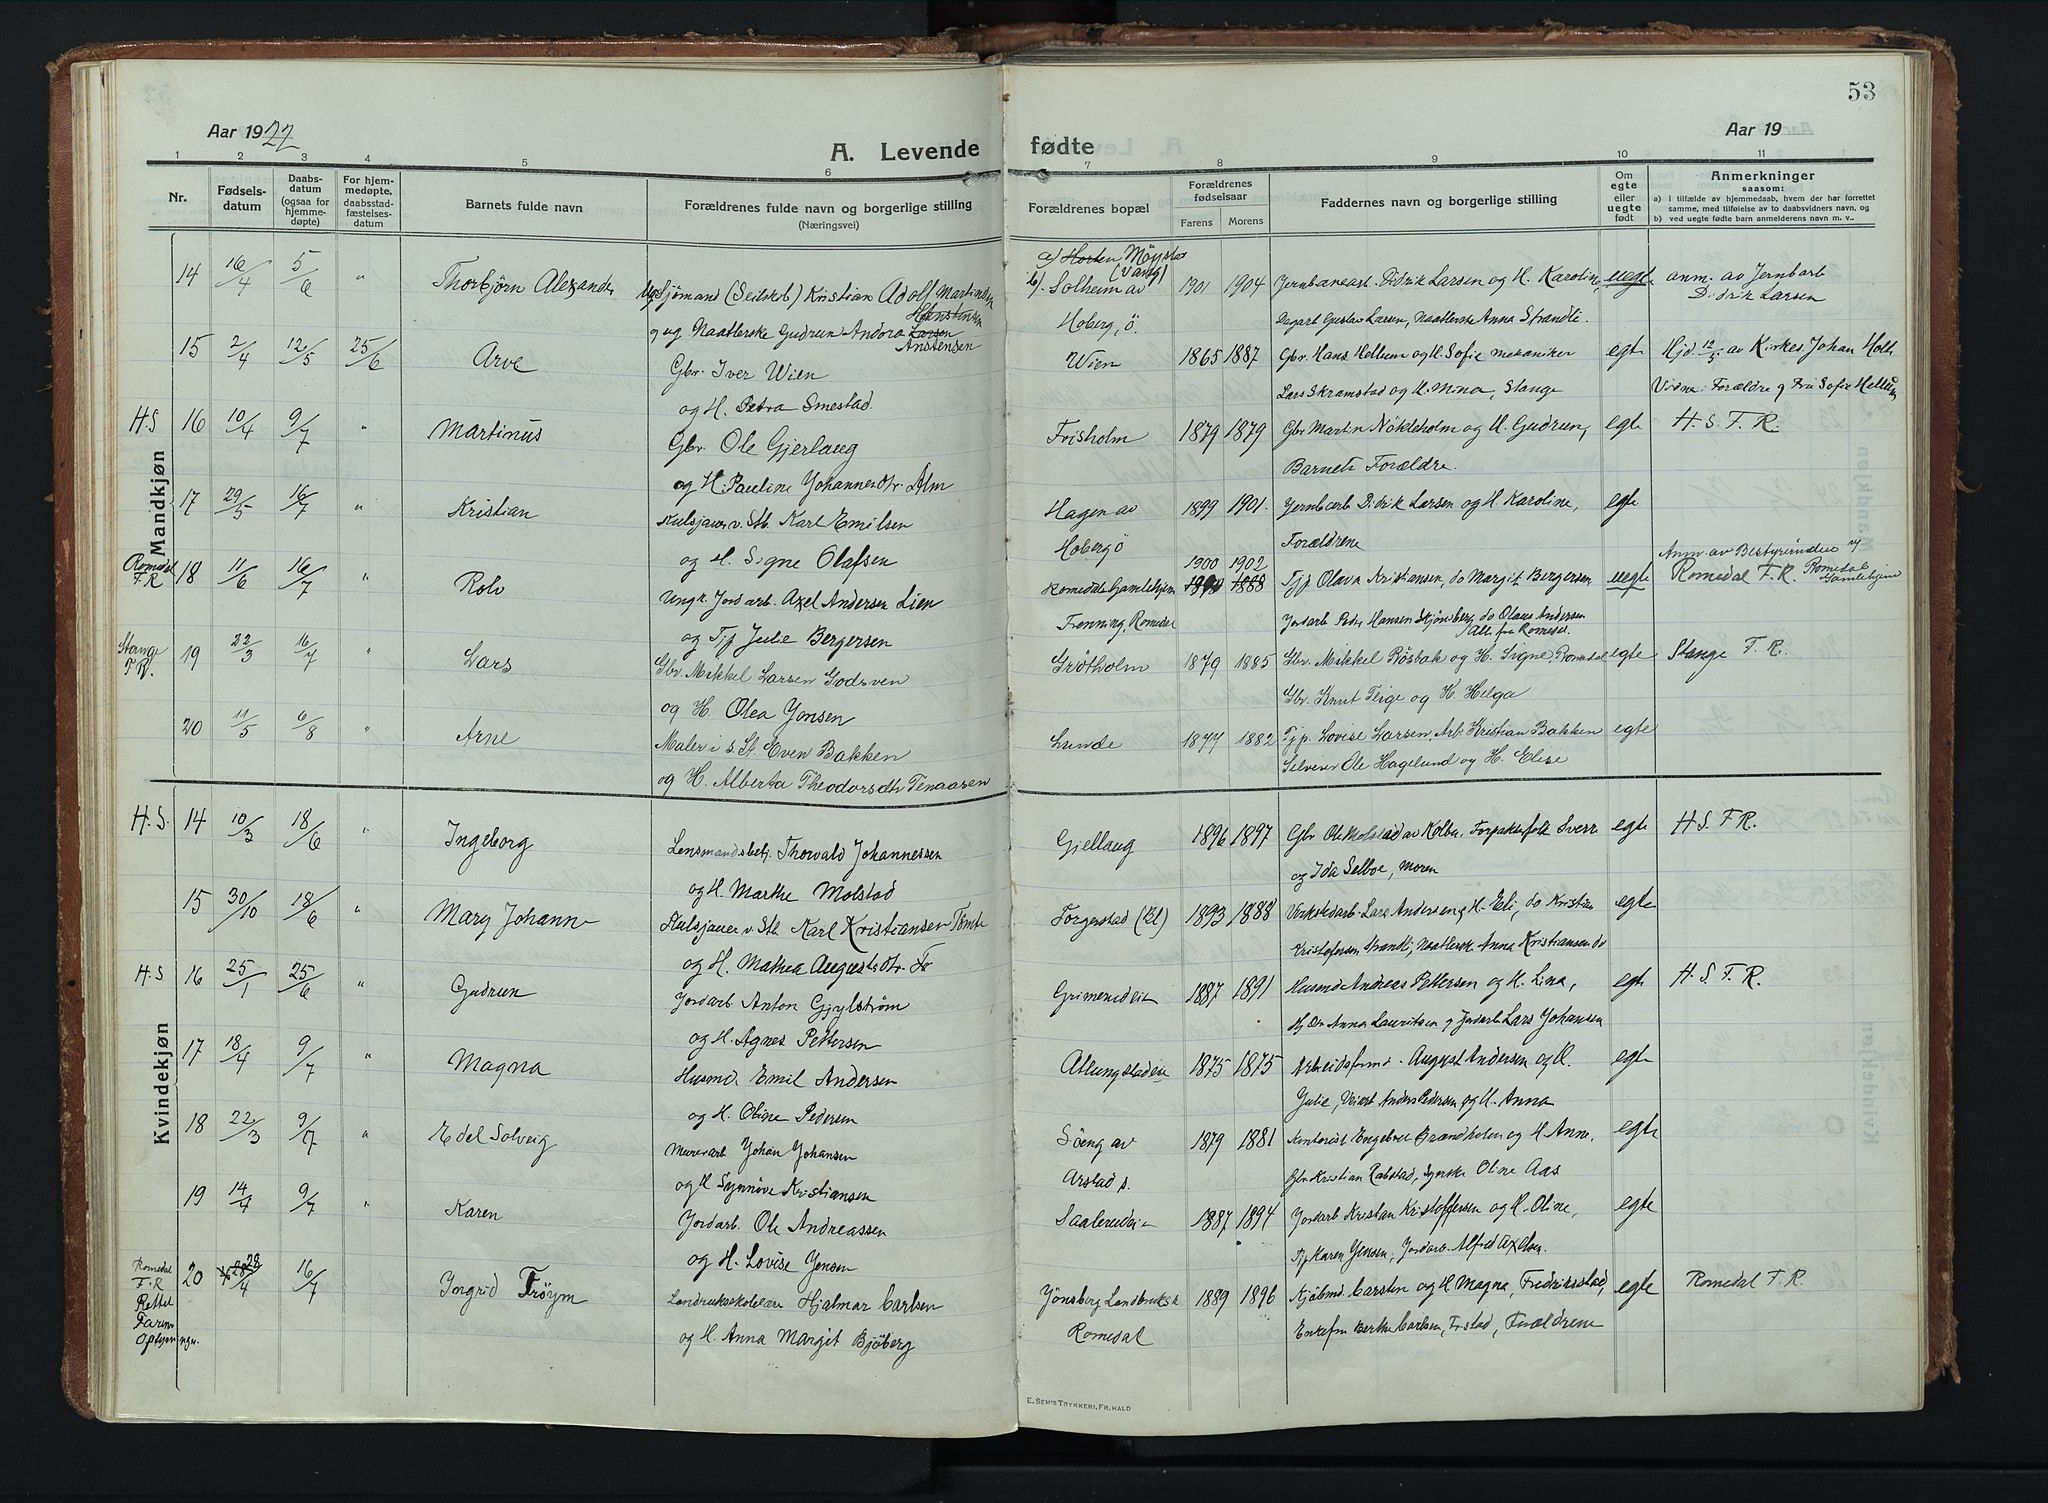 53
Aar 1922
A. Levende fødte
Aar 19
1 2 3 4 5 6 7 8 9 10 11
Nr.
Fødsels-
datum
Daabs-
datum
(ogsaa for
hjemme-
døpte)
For hjem-
medøpte,
daabsstad-
fæstelses-
datum
Barnets fulde navn
Forældrenes fulde navn og borgerlige stilling
(Næringsvei)
Forældrenes bopæl
Forældrenes
fødselsaar
Farens Morens
Faddernes navn og borgerlige stilling
Om
egte
eller
uegte
født
Anmerkninger
saasom:
a) i tilfælde av hjemmedaab, hvem der har forrettet
samme, med tilføielse av to daabsvidners navn, og
b) ved uegte fødte barn anmelderens navn m. v..
Mandkjøn
14 16/4 5/6 " Thorbjørn Alexander
Sjømand (Seilskb) Kristian Adolf Martinsen
og ug. Naatlerske Gudrun Andora Larsen
Anstensen
a) Horten, (Vang)
b). Solheim av
Hoberg, ö.
1901 1904
Jernbanearb. Didrik Larsen og H. Karoline,
Dagarb Gustav Larsen, Naatlerske Anna Strandli.
uegte
anm. av Jernbarb
Didrik Larsen
15 2/4 12/5 25/6 Arve
Gbr. Iver Wien
og H. Petra Smestad
Wien 1865 1887
Gbr. Hans Hellum og H. Sofie mekaniker
Lars Skramstad og H. Mina, Stange
egte
Hjd. 12/5 av Kirkes Johan Holt
Vidne: Forældre og Fru Sofie Hellum
H.S 16 10/4 9/7 " Martinus
Gbr. Ole Gjerlaug
og H. Pauline Johannesdtr. Alm
Frisholm 1879 1879
Gbr Martin Nökleholm og H. Gudrun,
Barnets Forældre.
egte H. S. F. R.
17 29/5 16/7 " Kristian
Kulsjauer v. Stb. Karl Emilsen
og H. Signe Olafsen
Hagen av
Hoberg ö
1899 1901.
Jernbarb Didrik Larsen og H. Karoline,
Forældrene
egte
Romedal
F.R 18 11/6 16/7 " Rolv
Ungk. Jordarb. Axel Andersen Lien
og Tjp Julie Bergersen
Romedals Gamlehjem
Frenning, Romedal
1900 1902
1888
Tjp. Olava Kristiansen, do Margit Bergersen
Jordarb Peder Hansen Skjönsberg do Olaus Andersen
Alle fra Romedal.
uegte
Anm. av Bestyrerinden
Romedal F. R. Romedal
Gamlehjem
Stange
F.R. 19 22/3 16/7 " Lars
Gbr. Mikkel Larsen Godsven
og H. Olea Jonsen
Gröthholm 1879 1885
Gbr. Mikkel Rösbak og H. Signe, Romedal
Gbr. Knut Flige og H. Helga
egte Stange F. R.
20 11/5 6/8 " Arne
Maler i s. St. Even Bakken
og H. Alberta Theodorsdtr Tenaasen
Lunde 1877 1882
Tjp. Lovise Larsen, Arb Kristian Bakken
Ole Hagelund og H. Elise
egte
Kvindekjøn
H.S. 14 10/3 18/6 " Ingeborg
Lensmandsbetj. Thorvald Johannessen
og H. Marthe Molstad
Gjellaug 1896 1897
Gbr Ole Molstad av Kolbu. Forpakterfolk Sverre
og Ida Selboe, moren
egte H S F R.
15 30/10 18/6 " Mary Johanne
Kulsjauer v. Stb. Karl Kristiansen Tomte
og H. Mathea Augustsdtr. Fo
Torgerstad (Rl) 1893 1888
Verkstedarb. Lars Andersen og H. Eli, do Kristian
Kristofersen Strandli, Naatlersk Anna Kristiansen do
egte
H.S 16 25/1 25/6 " Gudrun
Jordarb Anton Gjylström
og H. Agnes Pettersen
Grimerudeie 1887 1891
Husmd Andreas Pettersen og H. Lina,
Anna Lauritsen og Jordarb Lars Johansen
egte H. S F. R.
17 18/4 9/7 " Magna
Husmd Emil Andersen
og H. Oline Pedersen
Atlungstadeie 1875 1875
Arbeidsformd. August Andersen og H.
Julie, Anders Pedersen og H. Anna
egte
18 22/3 9/7 " Edel Solveig
Murerarb Johan Johansen
og H Synnöve Kristiansen
Söeng av
Arstad s.
1879 1881
Kontorist Engebret Brændholen og H Anne,
Gbr Kristian Rabstad, Syerske Oline Aas
egte
19 14/4 9/7 " Karen
Jordarb. Ole Andreassen
og H. Lovise Jensen
Saalerudeie 1887 1894
Jordarb Kristian Kristoffersen og H. Oline,
Tjp Karen Jensen, Jordarb. Alfred Axelsen.
egte
Romedal
F.R
Rettet
Farens
Oplysninger.
20 28/4 16/7 Ingrid Fröym
Landbruksskolelærer Hjalmar Carlsen
og H. Anna Margit Bjöberg
Jönsberg Landbruksk
Romedal
1889 1896
Kjöbmd. Carsten og H Magna, Fredriksstad,
Enkefru Berthe Carlsen, F.stad, Forældrene
egte Romedal F. R.
E. SEM'S TRYKKERI, FR.HALD